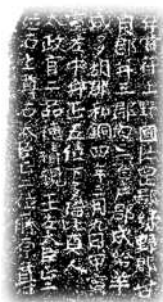 弁官符上野國片岡郡緑野郡甘
良郡并三郡内三百戸郡成給羊
成多胡郡和銅四年三月九日甲寅
宣左中弁正五位下多治比真人
太政官二品穂積親王左太臣正二
位石上尊右太臣正二位藤原尊